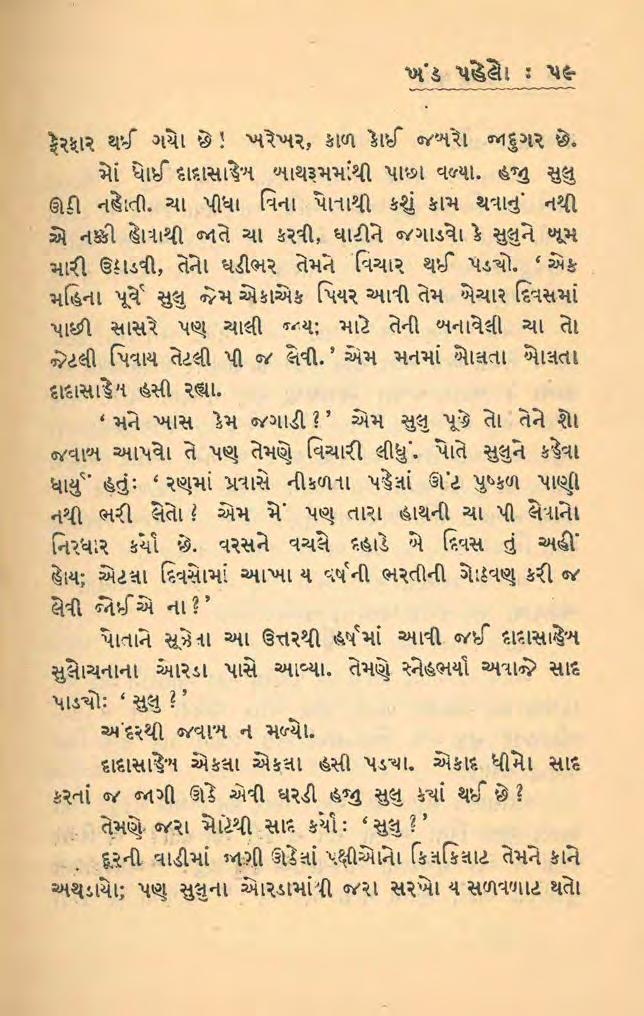 ખંડ પહેલો : ૫૯
ફેરફાર થઈ ગયો છે! ખરેખર, કાળ કોઈ જબરો જાદુગર છે.
મોં ધોઈ દાદાસાહેબ બાથરૂમમાંથી પાછા વળ્યા. હજી સુલુ
ઊઠી નહોતી. ચા પીધા વિના પોતાથી કશું કામ થવાનું નથી
એ નક્કી હોવાથી જાતે ચા કરવી, ઘાટીને જગાડવો કે સુલુને બૂમ
મારી ઉઠાડવી, તેનો ઘડીભર તેમને વિચાર થઈ પડ્યો. ‘ એક
મહિના પૂર્વે સુલુ જેમ એકાએક પિયર આવી તેમ બેચાર દિવસમાં
પાછી સાસરે પણ ચાલી જાય; માટે તેની બનાવેલી ચા તો
જેટલી પિવાય તેટલી પી જ લેવી.’ એમ મનમાં બોલતા બોલતા
દાદાસાહેબ હસી રહ્યા.
‘ મને ખાસ કેમ જગાડી ?’ એમ સુલુ પૂછે તો તેને શો
જવાબ આપવો તે પણ તેમણે વિચારી લીધું. પોતે સુલુને કહેવા
ધાર્યું હતું: ‘ રણમાં પ્રવાસે નીકળતા પહેલાં ઊંટ પુષ્કળ પાણી
નથી ભરી લેતો? એમ મેં પણ તારા હાથની ચા પી લેવાનો
નિરધાર કર્યો છે. વરસને વચલે દહાડે બે દિવસ તું અહીં
હોય; એટલા દિવસોમાં આખા ય વર્ષની ભરતીની ગોઠવણ કરી જ
લેવી જોઈએ ના?’
પોતાને સૂઝેલા આ ઉત્તરથી હર્ષમાં આવી જઈ દાદાસાહેબ
સુલોચનાના ઓરડા પાસે આવ્યા. તેમણે સ્નેહભર્યા અવાજે સાદ
પાડ્યો: ‘ સુલુ ?’
અંદરથી જવાબ ન મળ્યો.
દાદાસાહેબ એકલા એકલા હસી પડયા. એકાદ ધીમો સાદ
કરતાં જ જાગી ઊઠે એવી ઘરડી હજી સુલુ કયાં થઈ છે?
તેમણે જરા મોટેથી સાદ કર્યો: ‘ સુલુ ?’
દૂરની વાડીમાં જાગી ઊઠેલાં પક્ષીઓનો કિલકિલાટ તેમને કાને
અથડાયો; પણ સુલુના ઓરડામાંથી જરા સરખો ય સળવળાટ થતો